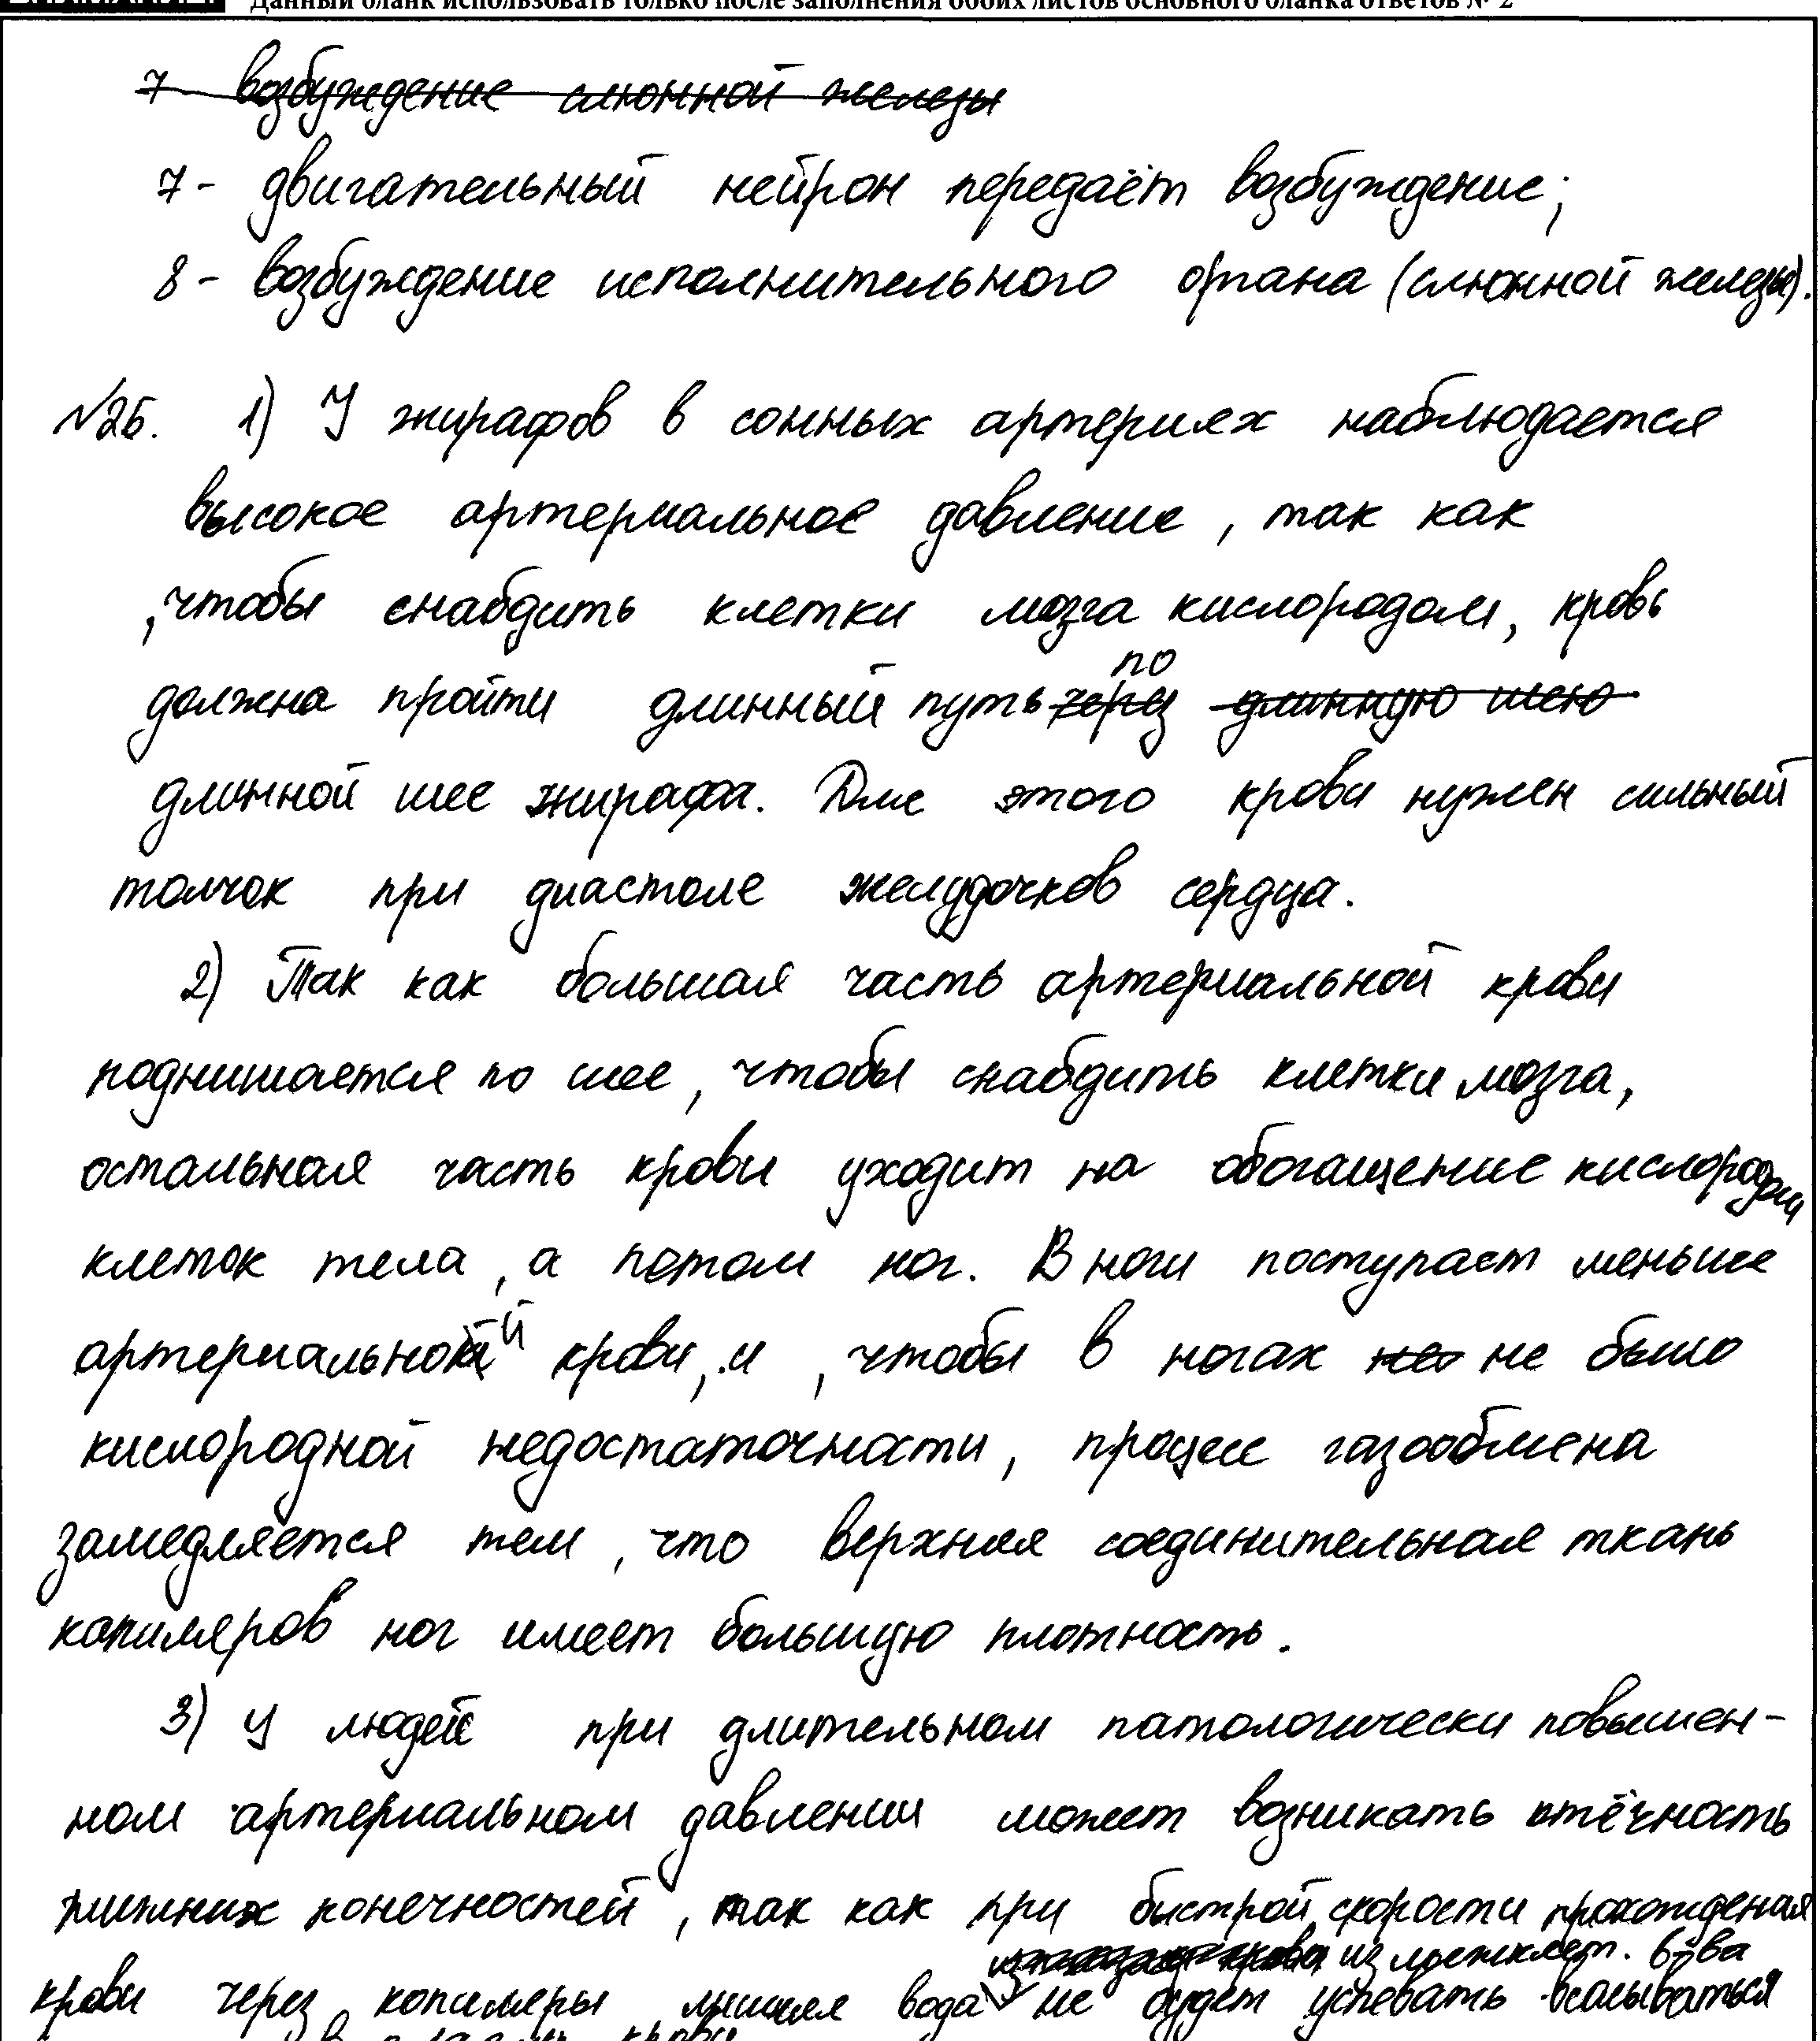 Данный бланк использовать только после заполнения обоих листов основного бланка ответов № 2
7 возбуждение слюнной железы
7 - двигательный нейрон передаёт возбуждение;
8 - возбуждение исполнительного органа (слюнной железы).
№25. 1) У жирафов в сонных артериях наблюдается
высокое артериальное давление, так как
, чтобы снабдить клетки мозга кислородом, кровь
должна пройти длинный путь через по длинную шею
длинной шее жирафа. Для этого крови нужен сильный
толчок при диастоле желудочков сердца.
2) Так как большая часть артериальной крови
поднимается по шее, чтобы снабдить клетки мозга,
остальная часть крови уходит на обогащение кислородом
клеток тела, а потом ног. В ноги поступает меньше
артериальной крови, и, чтобы в ногах не было
кислородной недостаточности, процесс газообмена
замедляется тем, что верхняя соединительная ткань
капиляров ног имеет большую плотность.
3) У людей при длительном патологически повышен-
ном артериальном давлении может возникать отёчность
нижних конечностей, так как при быстрой скорости прохождения
из межклет. в-ва
крови через капиляры лишняя вода не будет успевать всасываться